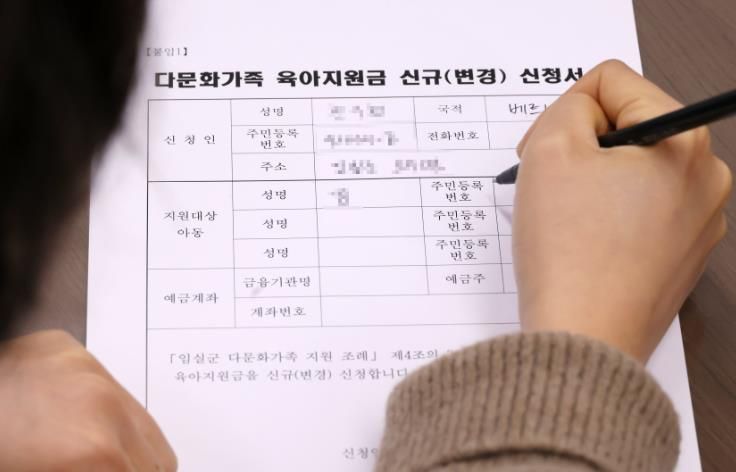 [붙임1]
다문화가족 육아지원금 신규(변경) 신청서
신 청 인
성명
국적
주민등록
번호
전화번호
주소
지원대상
아동
성명
주민등록
번호
성명
주민등록
번호
성명
주민등록
번호
예금계좌
금융기관명
예금주
계좌번호
「임실군 다문화가족 지원 조례」 제4조의
육아지원금을 신규(변경) 신청합니다